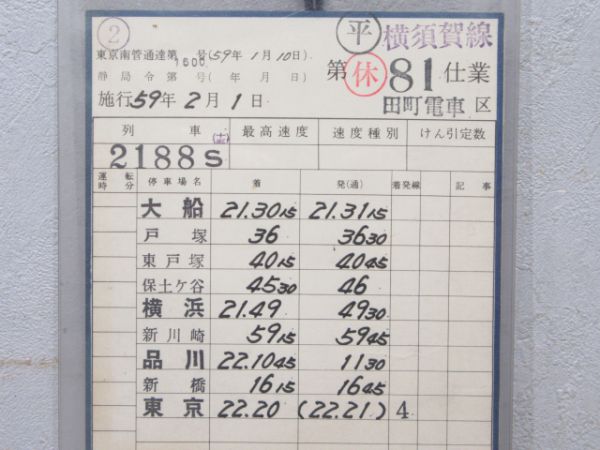 ② ㊥ 横須賀線
東京南管通達第1500号(59年1月10日)
静局令第 号( 年 月 日)
第 ㊡ 81 仕業
施行 59年 2月 1日
田町電車区
列 車 最高速度 速度種別 けん引定数
2188S
運転時分 停車場名 着 発(通) 着発線 記事
大船 21.30 15 21.31 15
戸塚 36 36 30
東戸塚 40 15 40 45
保土ケ谷 45 30 46
横浜 21.49 49 30
新川崎 59 15 59 45
品川 22.10 45 11 30
新橋 16 15 16 45
東京 22.20 (22.21) 4